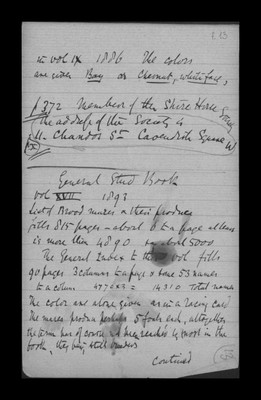 in vol IX 1886 The colors
are given Bay or Chesnut, white face,
p 372 Member of the Shire Horse Society
The address of this Society is
11. Chandos St Cavendish Square W
General Stud Book
Vol XVII 1893
List of Brood mares & their produce
fills 815 pages - about 6 to a page at least
is more than 4890 about 5000
The General Index to the vol fills
90 pages 3 columns to a page & some 53 names
to a column 477 0 × 3 = 14310 Total names
The color are alone given as in a Racing Card
The mares produce perhaps 5 foals each, altogether
the term has of course not been reached by most in the
book, they being still breeders
continued